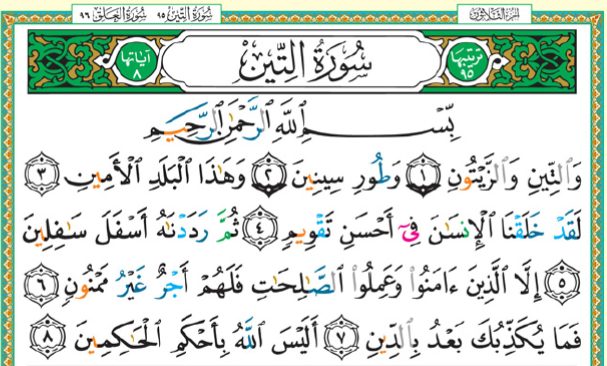 سُورَةُ التِّينِ ٩٥ سُورَةُ العَلَقِ ٩٦
الجُزءُ الثَّلاثُونَ
تَرتِيبُهَا ٩٥ سُورَةُ التِّينِ آيَاتُهَا ٨
بِسۡمِ ٱللَّهِ ٱلرَّحۡمَٰنِ ٱلرَّحِيمِ
وَٱلتِّينِ وَٱلزَّيۡتُونِ ١ وَطُورِ سِينِينَ ٢ وَهَٰذَا ٱلۡبَلَدِ ٱلۡأَمِينِ ٣
لَقَدۡ خَلَقۡنَا ٱلۡإِنسَٰنَ فِيٓ أَحۡسَنِ تَقۡوِيمٖ ٤ ثُمَّ رَدَدۡنَٰهُ أَسۡفَلَ سَٰفِلِينَ
٥ إِلَّا ٱلَّذِينَ ءَامَنُواْ وَعَمِلُواْ ٱلصَّٰلِحَٰتِ فَلَهُمۡ أَجۡرٌ غَيۡرُ مَمۡنُونٖ ٦
فَمَا يُكَذِّبُكَ بَعۡدُ بِٱلدِّينِ ٧ أَلَيۡسَ ٱللَّهُ بِأَحۡكَمِ ٱلۡحَٰكِمِينَ ٨